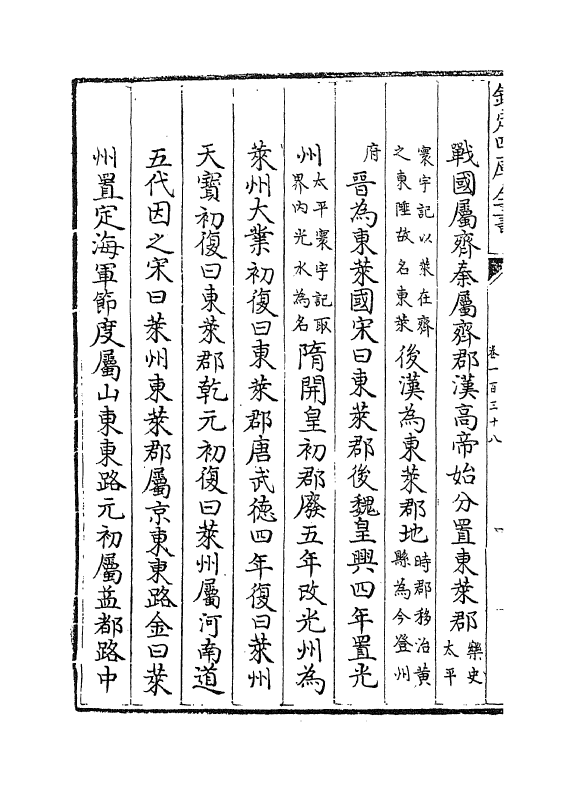 欽定四庫全書
卷一百三十八
一
戰國屬齊秦屬齊郡漢高帝始分置東萊郡樂史太平
寰宇記以萊在齊之東陲故名東萊後漢為東萊郡地時郡移治黃縣為今登州
府晉為東萊國宋曰東萊郡後魏皇興四年置光
州太平寰宇記取界內光水為名隋開皇初郡廢五年改光州為
萊州大業初復曰東萊郡唐武德四年復曰萊州
天寶初復曰東萊郡乾元初復曰萊州屬河南道
五代因之宋曰萊州東萊郡屬京東東路金曰萊
州置定海軍節度屬山東東路元初屬益都路中